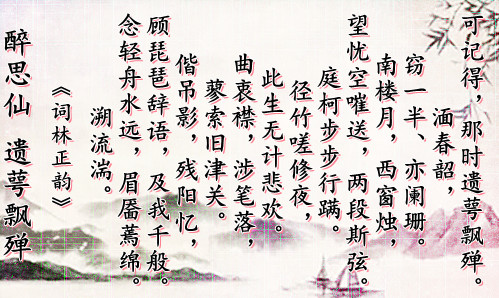 可记得，那时遗萼飘殚。
湎春韶，
窃一半、亦阑珊。
南楼月，西窗烛，
望忧空嗺送，两段斯弦。
庭柯步步行蹒。
径竹嗟修夜，
此生无计悲欢。
曲衷襟，涉笔落，
蓼索旧津关。
偕吊影，残阳忆，
顾琵琶辞语，及我千般。
念轻舟水远，眉靥蔫绵。
溯流湍。
《词林正韵》
醉思仙 遗萼飘殚